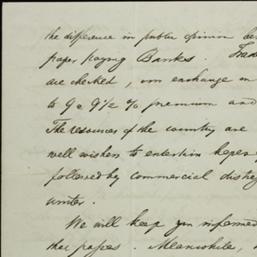 the difference in public opinion
paper paying Banks.
are checked, our exchange on
to 9 @ 9½ % premium and
The resources of the country are
well wishers to entertain hopes
followed by commercial
winter.
We will keep you informed
the papers. Meanwhile,